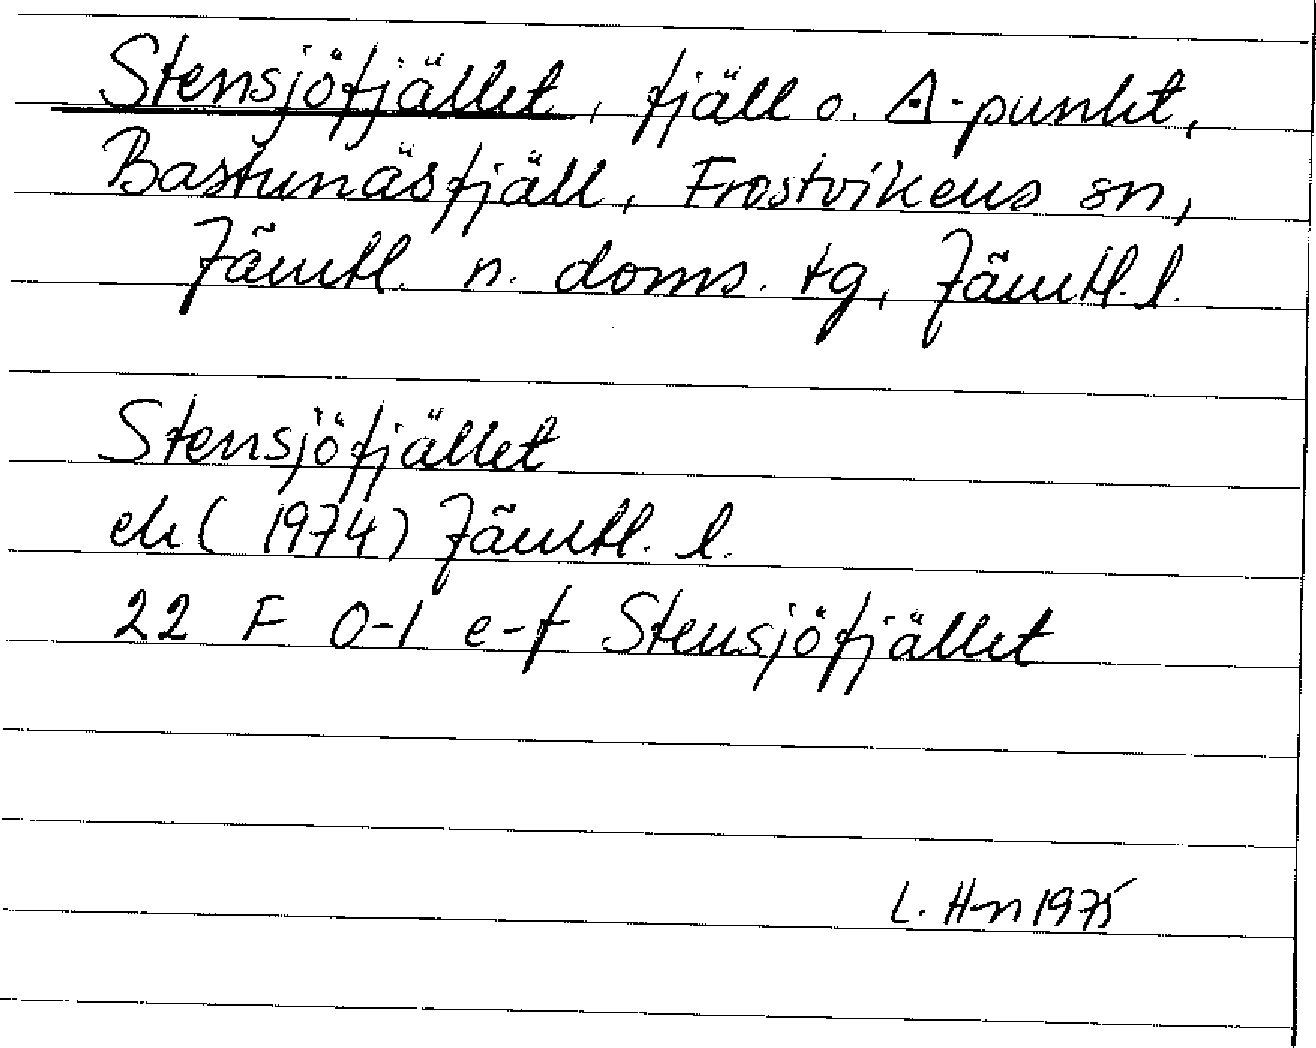 Stensjöfjället, fjäll o. △-punkt,
Bastunäsfjäll, Frostvikens sn,
Jämtl. n. doms. tg, Jämtl. l.
Stensjöfjället
ek (1974) Jämtl. l.
22 F 0-1 e-f Stensjöfjället
L. Hn 1975